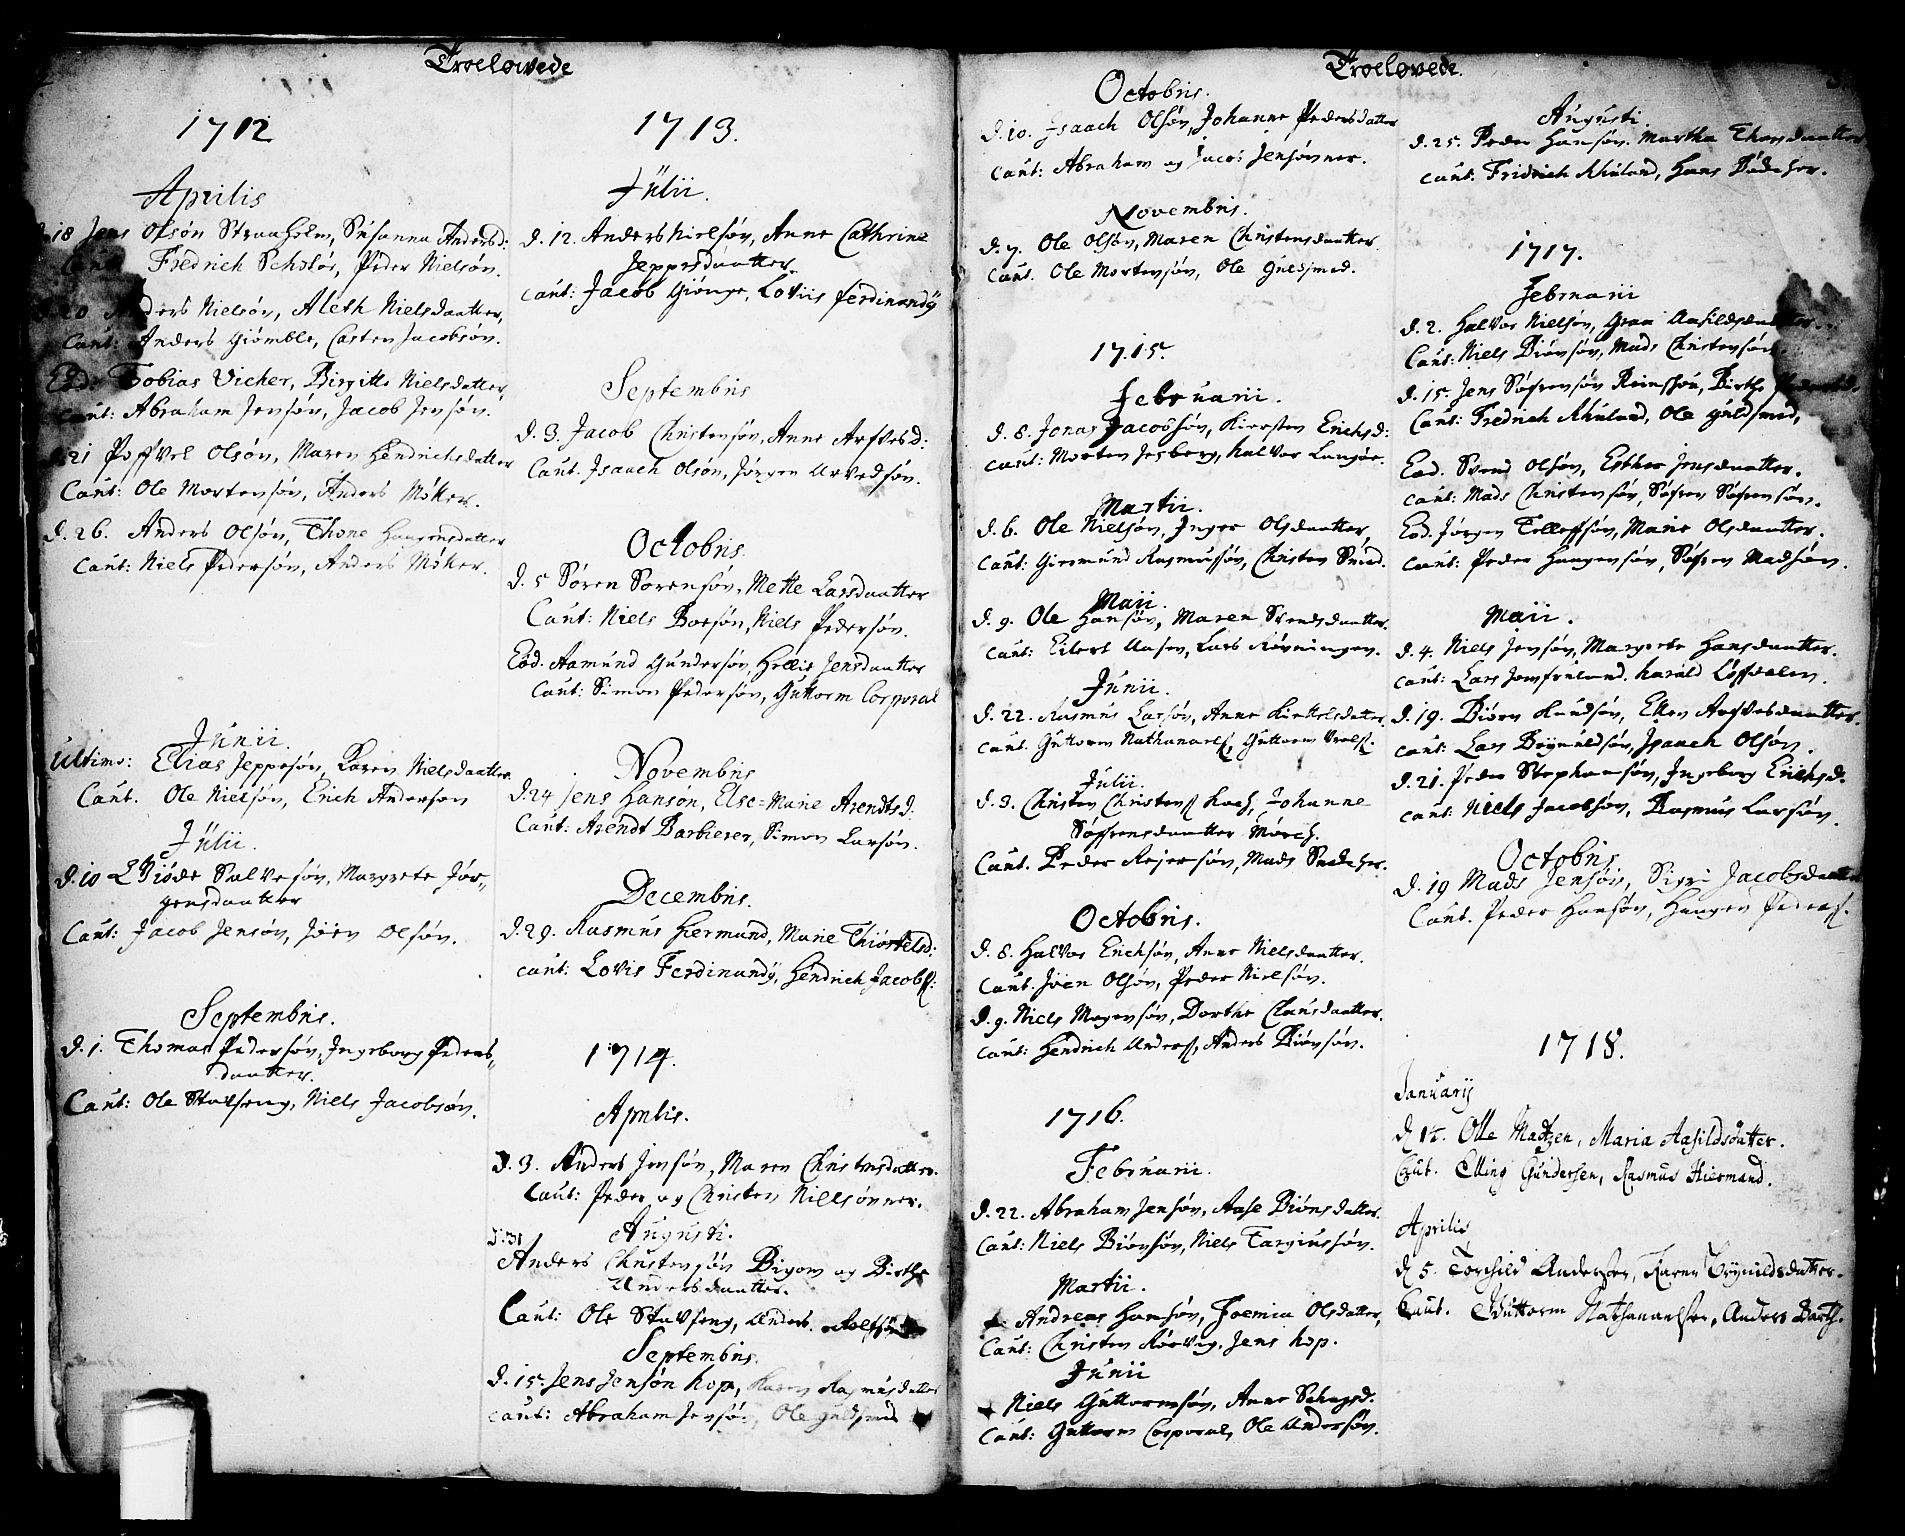 Troeløvede
1712
Aprilis
d. 18 Jens Olsøn Straaholm, Susanna Andersd:
Caut: Fredrich Schøløs, Peder Nielsøn.
d. 20 Anders Nielsøn, Aleth Nielsdaatter,
Caut: Anders Giømble, Casten Jacobsøn.
Eod: Tobias Vicher, Birgitte Nielsdatter,
Caut: Abraham Jensøn, Jacob Jensøn.
d. 21 Poffvel Olsøn, Maren Hendrichsdatter
Caut: Ole Mortensøn, Anders Møker.
d. 26. Anders Olsøn, Thone Haagensdatter
Caut: Niels Pedersøn, Anders Møker.
Junii.
Ultimo: Elias Jeppesøn, Karen Nielsdaatter.
Caut. Ole Nielsøn, Erich Andersøn
Julii.
d. 10 Salvesøn, Margrete Jør-
gensdaatter
Caut: Jacob Jensøn, Jøen Olsøn.
Septembris.
d. 1. Thomas Pedersøn, Ingeborg Peders-
daatter.
Caut: Ole Stafseng, Niels Jacobsøn.
1713.
Julii.
d. 12. Anders Nielsøn, Anne Cathrine
Jeppesdaatter.
Caut: Jacob Giønge, Loviis Ferdinandÿ
Septembris
d. 3. Jacob Christensøn, Anne Arfvesd:
Caut. Isaach Olsøn, Jørgen Arvedsøn.
Octobris.
d. 5 Søren Sorensøn, Mette Larsdaatter
Caut: Niels Boesøn, Niels Pedersøn.
Eod. Aamund Gundersøn, Hellie Jensdaatter
Caut: Simon Pedersøn, Guttorm Corporal
Novembris
d. 24 Jens Hansøn, Else=Marie Arendtsd:
Caut: Arendt Barbierer, Simon Larsøn.
Decembris.
d. 29. Rasmus Hermund, Marie Thiøstelsd:
Caut: Lovis Ferdinandÿ, Hendrich Jacobs:
1714.
Aprilis.
d. 3. Anders Jensøn, Maren Christensdatter.
Caut: Peder og Christen Nielsønner.
Augusti.
d. 31
Anders Christensøn Bigom og Birthe
Andersdaatter.
Caut: Ole Stafseng, Anders
Septembris.
d. 15. Jens Jensøn Hop, Karen Rasmusdatter
Caut: Abraham Jensøn, Ole Guldsmed
Troeløvede.
Octobris.
d. 10. Isaach Olsøn, Johanne Pedersdatter
Caut: Abraham og Jacob Jensønner.
Novembris.
d. 7. Ole Olsøn, Maren Christensdaatter.
Caut. Ole Mortensøn, Ole Guldsmed.
1715.
Februarii.
d. 8. Jonas Jacobsøn, Kiersten Erichsd:
Caut: Morten Jesberg, Halvor Langøe.
Martii.
d. 6. Ole Nielsøn, Inger Olsdaatter,
Caut: Giermund Rasmussøn, Christen Smed.
Maii.
d. 9. Ole Hansøn, Maren Svendsdaatter.
Caut: Eilert Aasen, Lars Rønningen.
Junii.
d. 22. Rasmus Larsøn, Anne Kiettelsdatter
Caut. Guttorm Nathanaels, Guttorm
Julii.
d. 3. Christen Christens Koch, Johanne
Søffrensdaatter Mørch.
Caut. Peder Rejersøn, Mads
Octobris.
d. 8. Halvor Erichsøn, Anne Nielsdaatter.
Caut. Jøen Olsøn, Peder Nielsøn.
d. 9. Niels Mogensøn, Dorthe Clausdaatter.
Caut: Hendrich Anders, Anders Biønsøn.
1716.
Februarii.
d. 22. Abraham Jensøn, Aase Biønsdatter.
Caut: Niels Biønsøn, Niels Targiussøn.
Martii.
Andreas Hansøn, Joemia Olsdatter,
Caut: Christen Rørvig, Jens Hop.
Junii
Niels Guttormsøn, Anne
Caut: Guttorm Corporal, Ole Andersøn.
Augusti.
d. 25. Peder Hansøn. Martha Thorsdaatter
Caut. Fridrich Rhuland, Hans Bødcher.
1717.
Februarii
d. 2. Halvor Nielsøn, Groe Aasildsdaatter.
Caut: Niels Biønsøn, Mads Christensøn.
d. 15. Jens Søfrensøn Birthe
Caut: Fredrich Rhuland, Ole Guldsmed,
Eod. Svend Olsøn, Esther Jensdaatter.
Caut: Mads Christensøn, Søfren Søfrensøn.
Eod. Jørgen Telleffsøn, Marie Olsdaatter.
Caut: Peder Haagensøn, Søfren Madsøn.
Maii.
d. 4. Niels Jensøn, Margrete Hansdaatter.
Caut: Lars Jomfruland, Harald Løffdalen.
d. 19. Biørn Knudsøn, Ellen Arfvesdaatter.
Caut: Lars Bøynuldsøn, Isaach Olsøn.
d. 21. Peder Stephansøn, Ingeborg Erichsd.
Caut: Niels Jacobsøn, Rasmus Larsøn.
Octobris
d. 19 Mads Jensøn, Sigri Jacobsdaatter
Caut. Peder Hansøn, Haagen Peders.
1718.
Januarÿ
d 12. Olle Madtzen, Maria Aasildsdatter.
Caut. Elling Gundersen, Rasmus Hiermand.
Aprilis
d 5. Torchild Andersen, Karen Brÿnildsdatter.
Caut. Guttorm Nathanaelsen, Anders Barth.